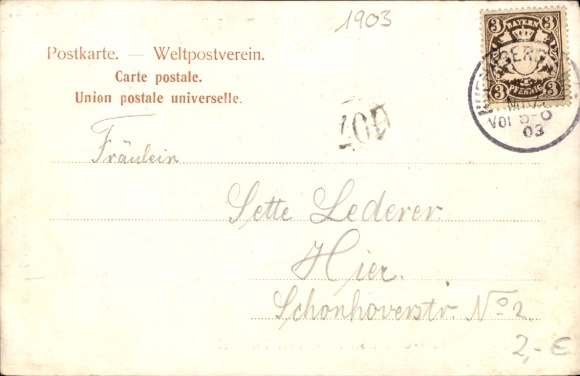 1903
3 BAYERN 3
3 PFENNIG 3
5-6
03
Postkarte. — Weltpostverein.
Carte postale.
Union postale universelle.
407
Fräulein
Sette Lederer
Hier.
Schonhoverstr. No 2.
2,- €